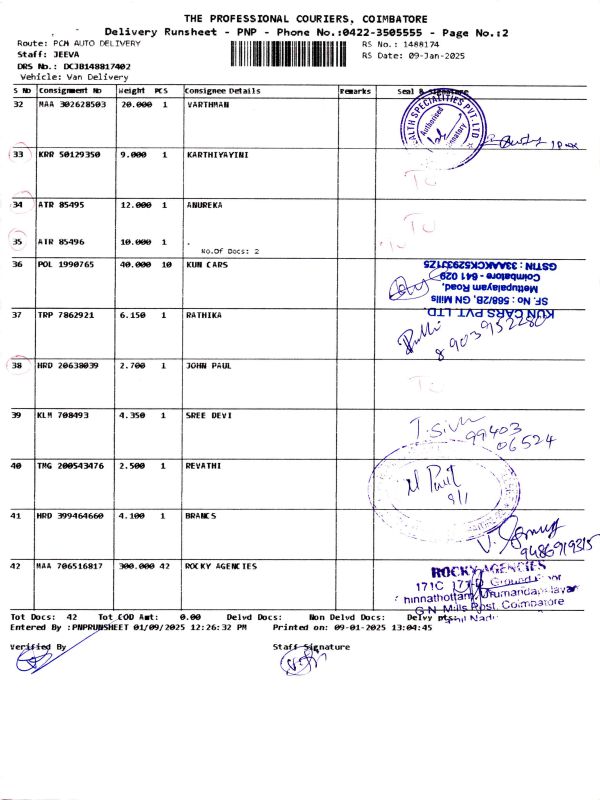 THE PROFESSIONAL COURIERS, COIMBATORE
Delivery Runsheet - PNP - Phone No.:0422-3505555 - Page No.:2
Route: PCM AUTO DELIVERY RS No.: 1488174
Staff: JEEVA RS Date: 09-Jan-2025
DRS No.: DCJB148817402
Vehicle: Van Delivery
S No Consignment No Weight PCS Consignee Details Remarks Seal & Signature
32 MAA 302628503 20.000 1 VARTHMAN
ALTH SPECIALITIES PVT. LTD
Authorised
33 KRR 50129350 9.000 1 KARTHIYAYINI
TU
34 ATR 85495 12.000 1 ANUREKA
TU
35 AIR 85496 10.000 1 .
No.Of Docs: 2
36 POL 1990765 40.000 10 KUN CARS
KUN CARS PVT. LTD.
SF. No : 568/2B, GN Mills
Mettupalayam Road,
Coimbatore - 641 029
37 TRP 7862921 6.150 1 RATHIKA
8903952280
38 HRD 20638039 2.700 1 JOHN PAUL
TU
39 KLM 708493 4.350 1 SREE DEVI
99403
06524
40 TMG 200543476 2.500 1 REVATHI
9/1
41 HRD 399464660 4.100 1 BRANCS
9486919315
42 MAA 706516817 300.000 42 ROCKY AGENCIES
ROCKY AGENCIES
171C Ground Floor
G.N. Mills Post, Coimbatore
Tot Docs: 42 Tot COD Amt: 0.00 Delvd Docs: Non Delvd Docs: Delvy pts:
Entered By :PNPRUNSHEET 01/09/2025 12:26:32 PM Printed on: 09-01-2025 13:04:45
Verified By Staff Signature